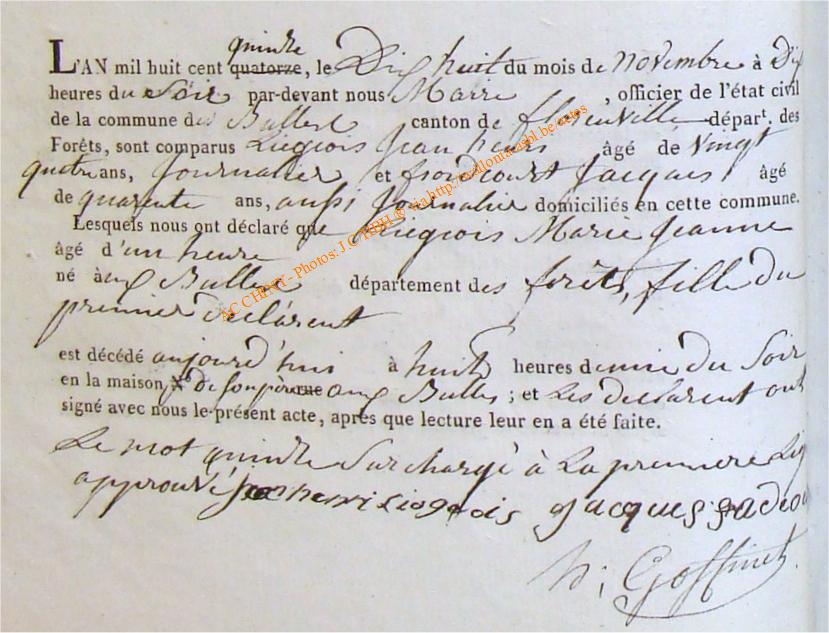 quinze
L'AN mil huit cent quatorze, le Dix huit du mois de novembre à Dix
heures du Soir par-devant nous Maire , officier de l'état civil
de la commune des Bulles canton de florenville départ. des
Forêts, sont comparus Liegeois Jean henri âgé de vingt
quatre ans, Journalier et Jacques âgé
de quarente ans, aussi Journalier domiciliés en cette commune.
Lesquels nous ont déclaré que Liegeois Marie Jeanne
âgé d'un heure
né à aux Bulles département des forêts, fille du
premier déclarent
est décédé aujourd'hui à huit heures demie du Soir
en la maison N.º de son père rue aux Bulles ; et Les déclarent ont
signé avec nous le présent acte, après que lecture leur en a été faite.
Le mot quinze Surchargé à La premiere Lig
approuvé jean henri liegeois jacques
h; Goffinet
AC CHINY - Photos: J.C.HBH © via http://